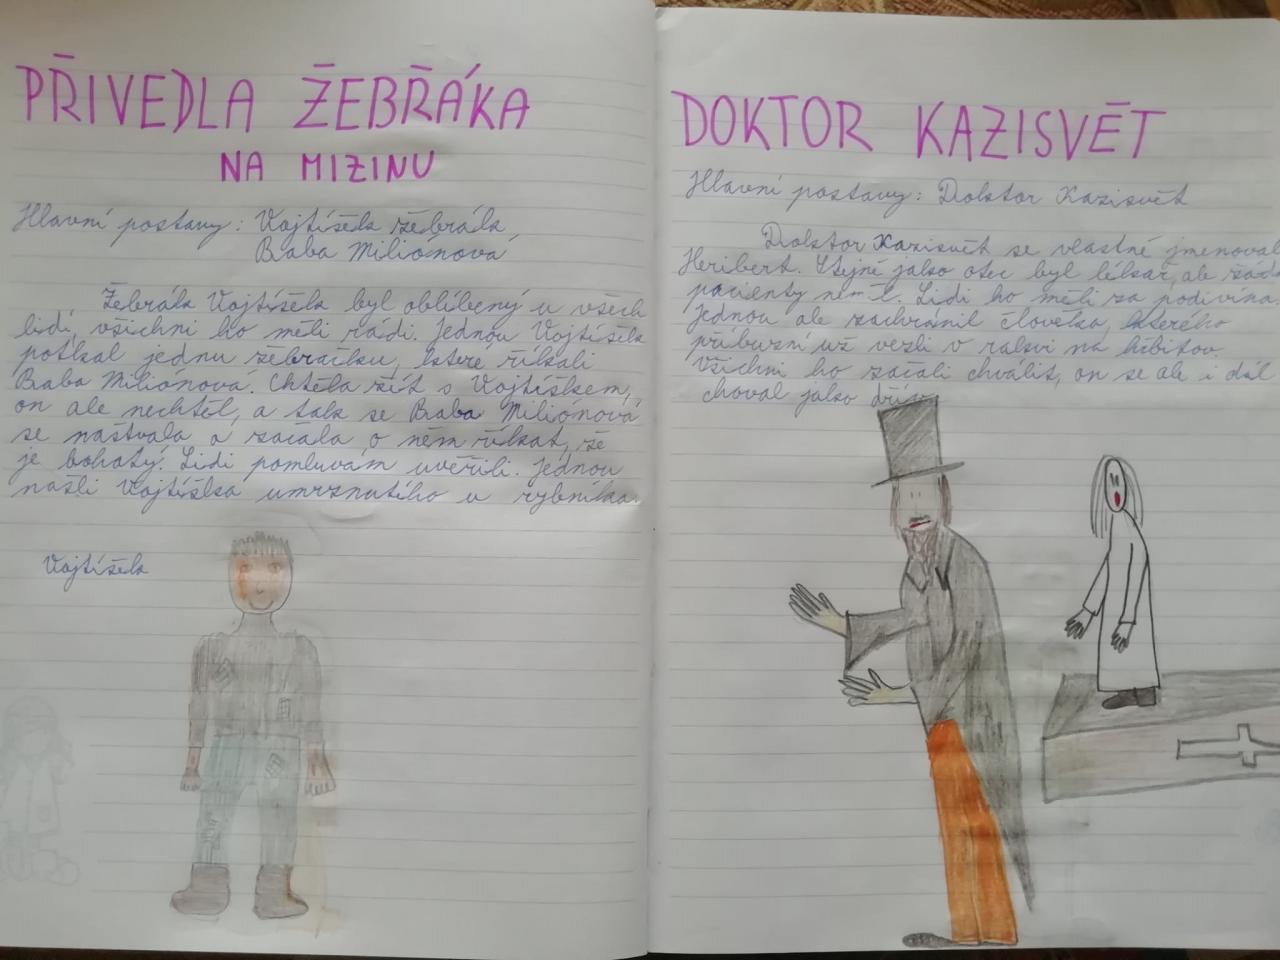 PŘIVEDLA ŽEBŘÁKA
NA MIZINU
Hlavní postavy: Vojtíšek žebrák
Baba Miliónová
Žebrák Vojtíšek byl oblíbený u všech
lidí, všichni ho měli rádi. Jednou Vojtíšek
potkal jednu žebračku, které říkali
Baba Miliónová. Chtěla žít s Vojtíškem,
on ale nechtěl, a tak se Baba Miliónová
se naštvala a začala o něm říkat, že
je bohatý. Lidi pomluvám uvěřili. Jednou
našli Vojtíška umrznutého u rybníka.
Vojtíšek
DOKTOR KAZISVĚT
Hlavní postavy: Doktor Kazisvět
Doktor Kazisvět se vlastně jmenoval
Heribert. Stejně jako otec byl lékař, ale
pacienty neměl. Lidi ho měli za podivína.
Jednou ale zachránil člověka, kterého
příbuzní už vezli v rakvi na hřbitov.
Všichni ho začali chválit, on se ale i dál
choval jako dřív.